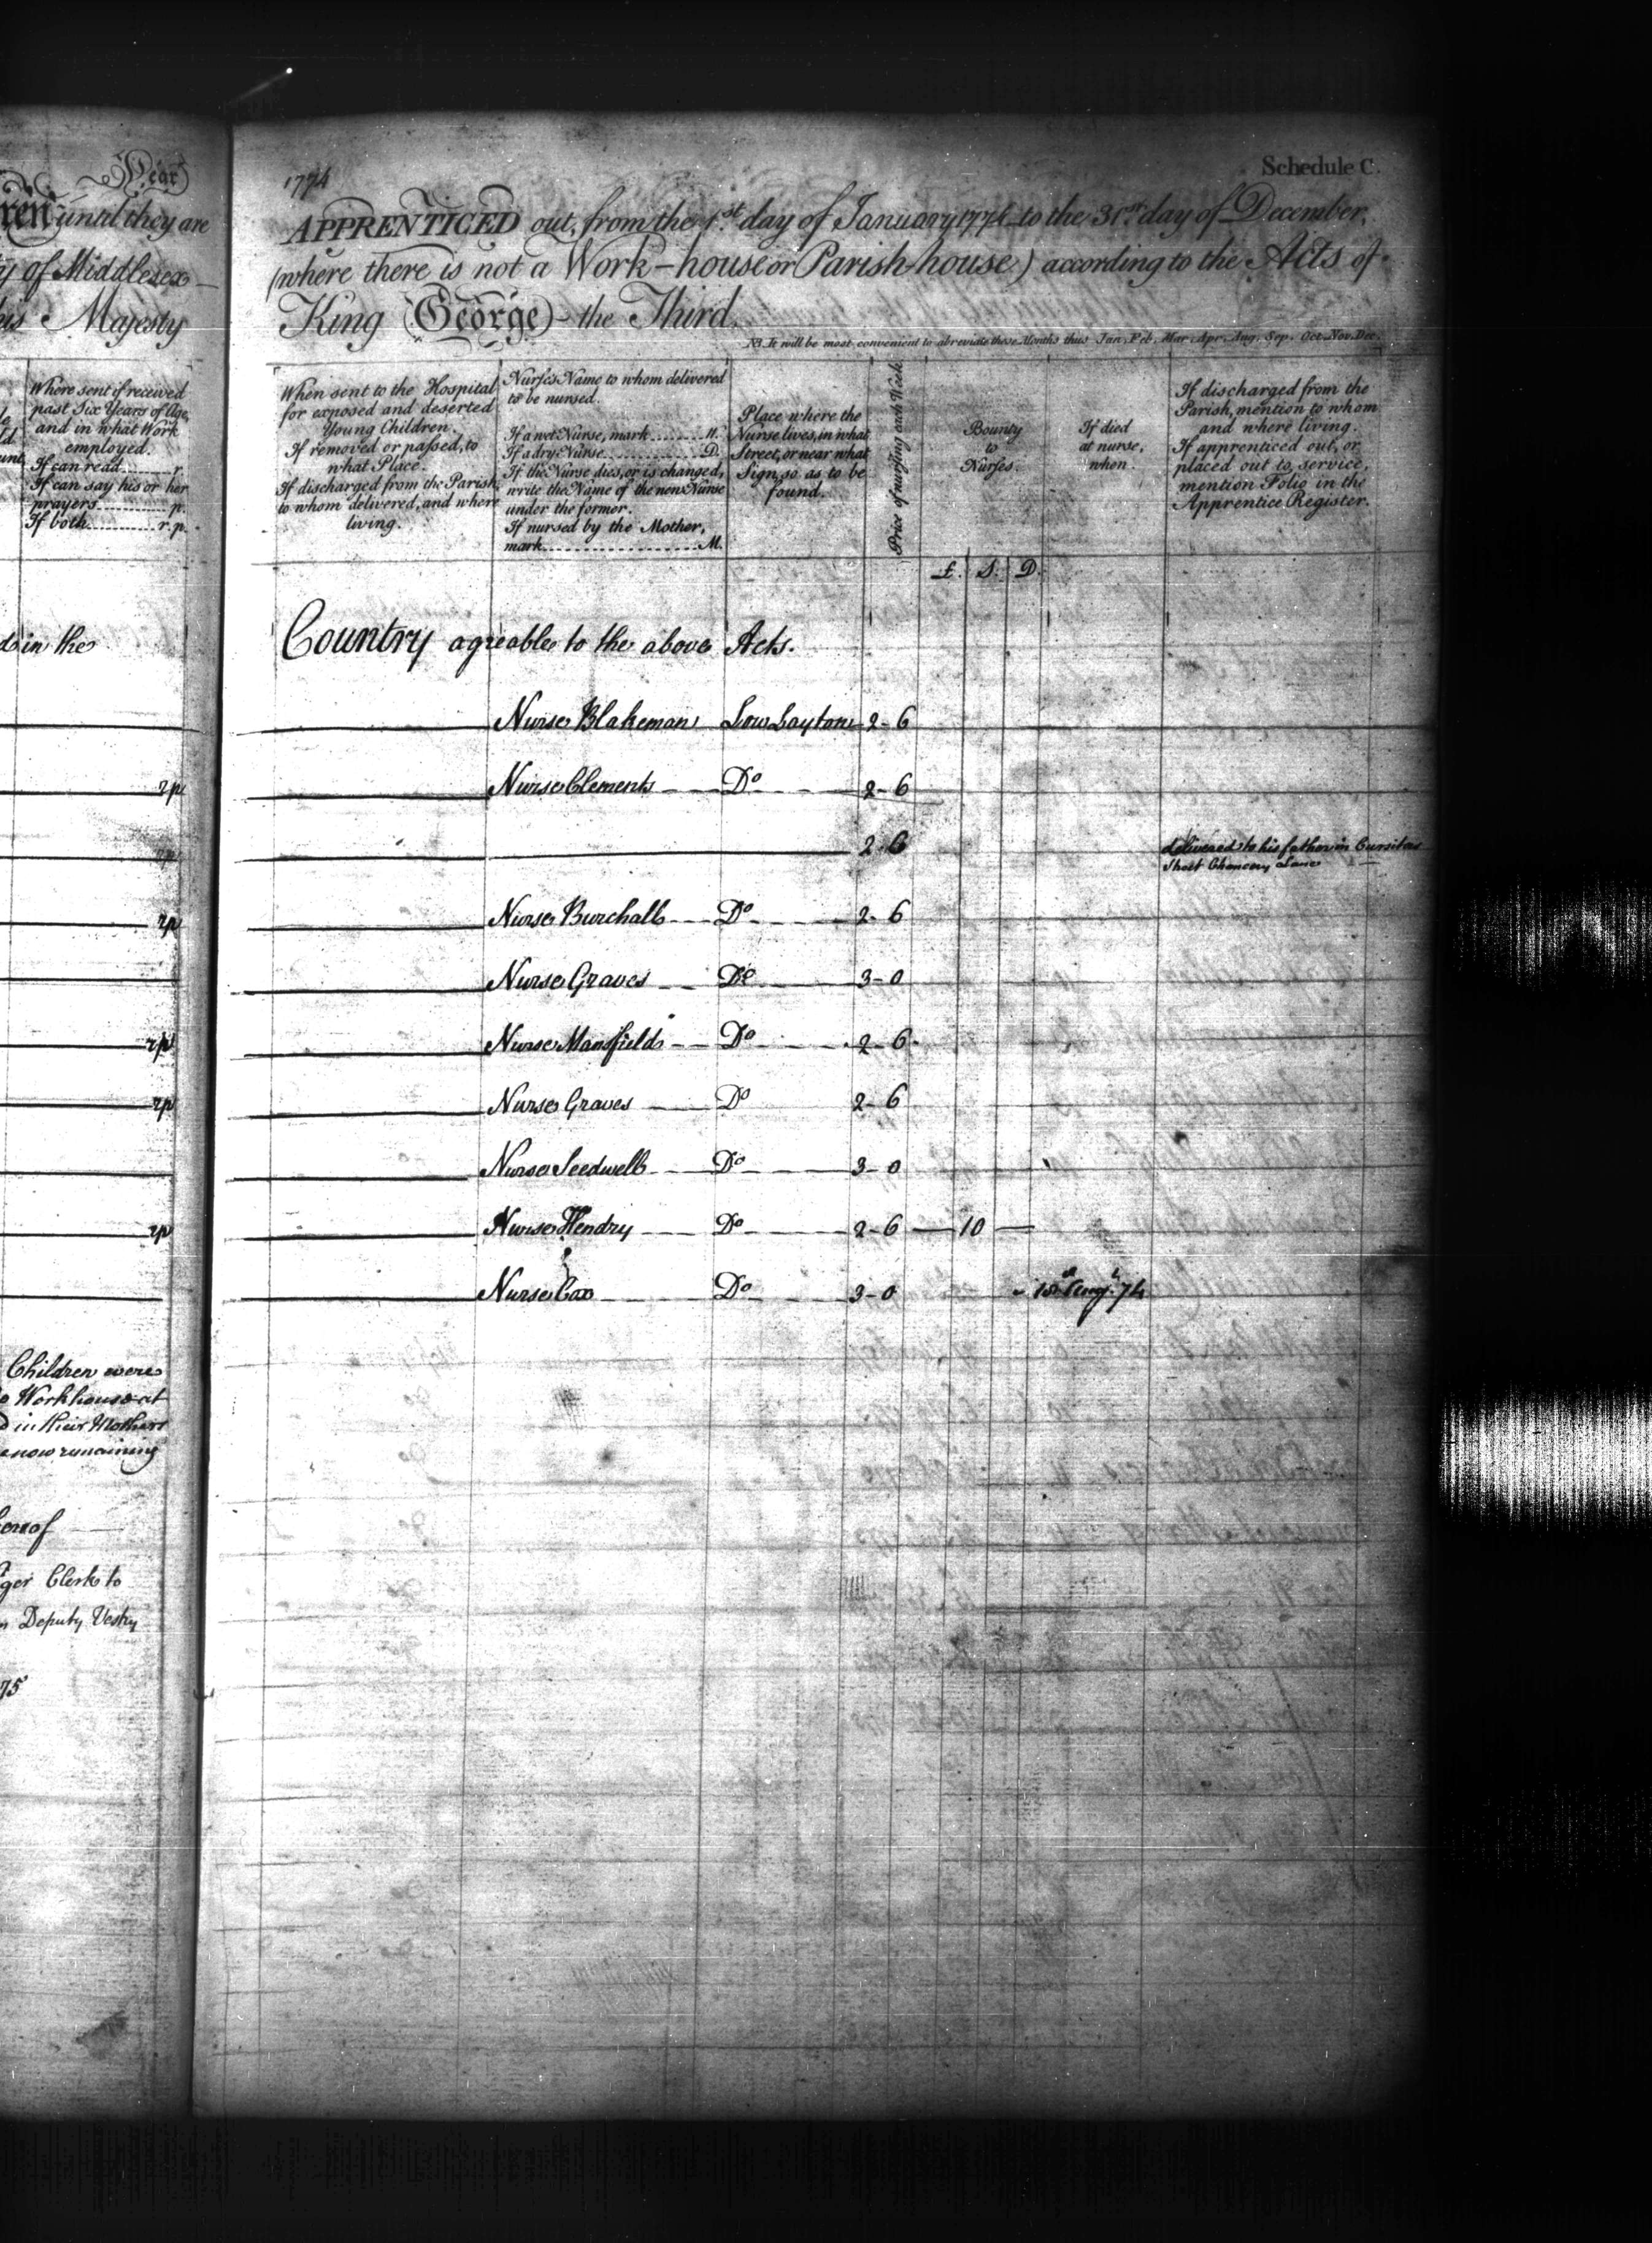 Year
ren until they are
y of Middlesex
his Majesty
Where sent if received
past Six Years of Age,
and in what Work
employed.
If can read........r.
If can say his or her
prayers..........p.
If both..........r.p.
d in the
rp
rp
rp
rp
rp
rp
Children were
Workhouse at
in their Mothers
now remaining
hereof
Clerk to
Deputy Vestry
75
Schedule C.
1774
APPRENTICED out, from the 1st day of January 1774 to the 31st day of December,
(where there is not a Work-house or Parish-house) according to the Acts of
King George the Third.
NB. It will be most convenient to abreviate these Months thus Jan. Feb. Mar. Apr. Aug. Sep. Oct. Nov. Dec.
When sent to the Hospital
for exposed and deserted
Young Children.
If removed or passed, to
what Place.
If discharged from the Parish,
to whom delivered, and where
living.
Nurse's Name to whom delivered
to be nursed.
If a wet Nurse, mark........W.
If a dry Nurse..............D.
If the Nurse dies, or is changed,
write the Name of the new Nurse
under the former.
If nursed by the Mother,
mark......................M.
Place where the
Nurse lives, in what
Street, or near what
Sign, so as to be
found.
Price of nursing each Week
Bounty
to
Nurses.
If died
at nurse,
when
If discharged from the
Parish, mention to whom
and where living.
If apprenticed out, or
placed out to service,
mention Folio in the
Apprentice Register.
£. S. D.
Country agreable to the above Acts.
Nurse Blakeman Low Layton 2-6
Nurse Clements Do 2-6
2-6 delivered to his father in Cursitors
Street Chancery Lane
Nurse Burchall Do 2-6
Nurse Graves Do 3-0
Nurse Mansfield Do 2-6
Nurse Graves Do 2-6
Nurse Seedwell Do 3-0
Nurse Hendry Do 2-6 — 10 —
Nurse Cox Do 3-0 Augt 74